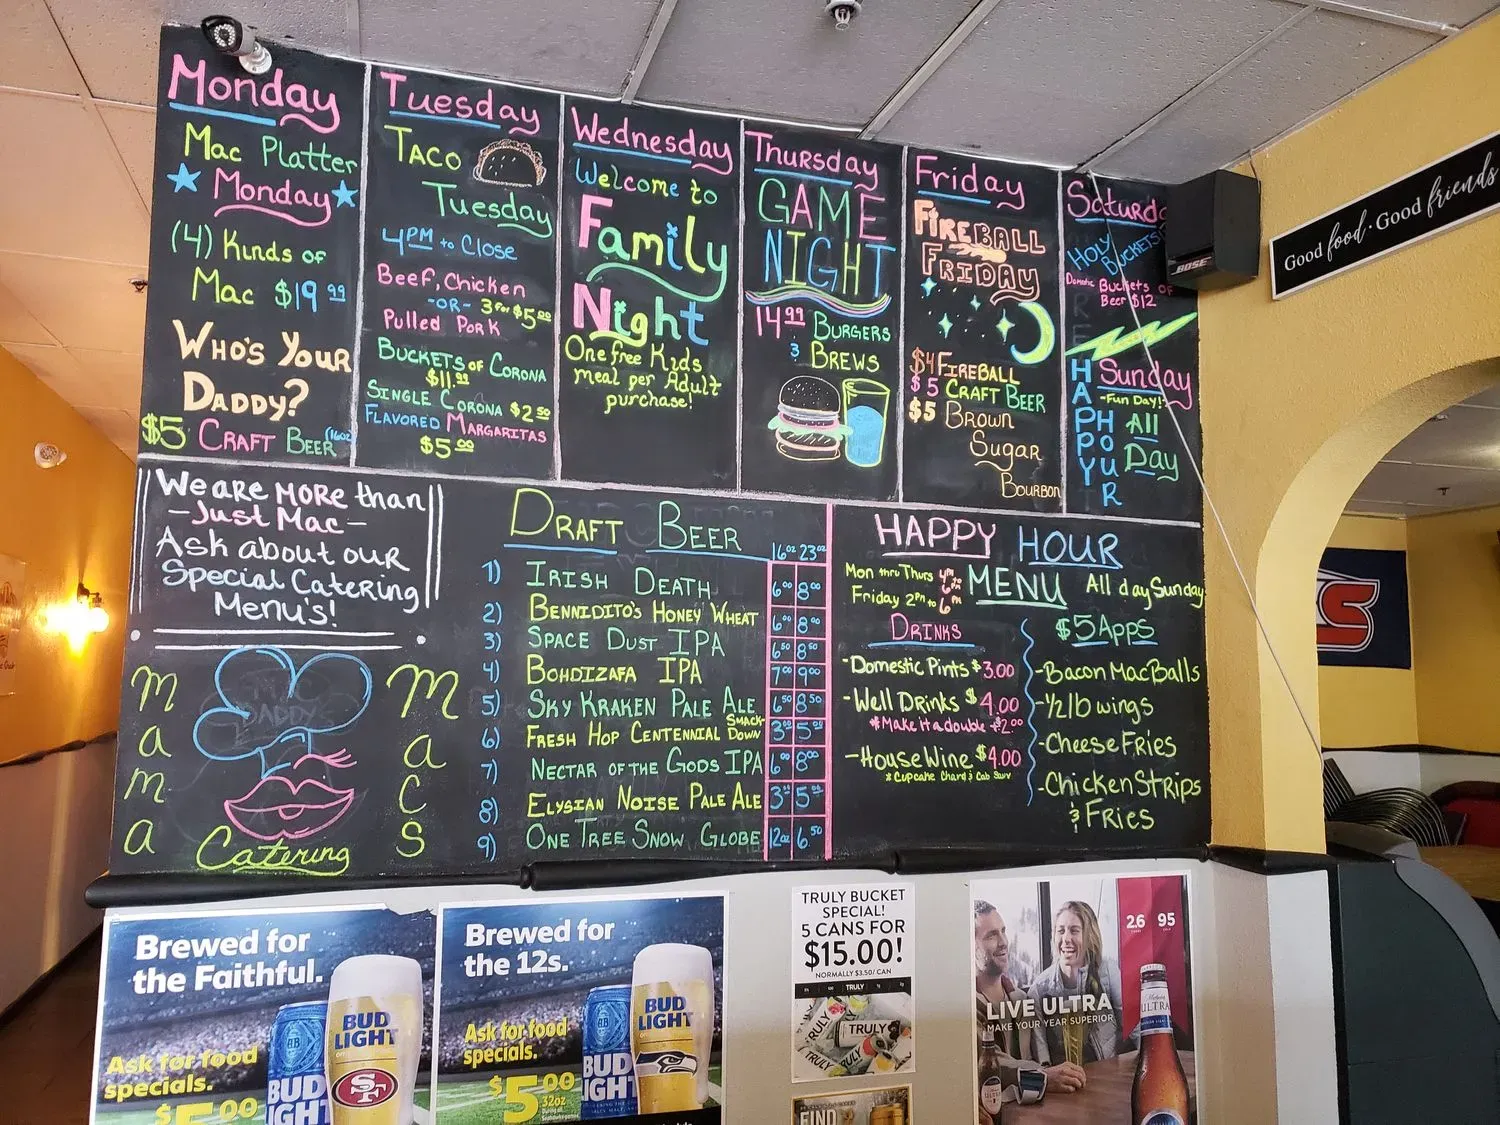 Monday
Mac Platter
Monday
(4) Kinds of
Mac $19 99
Who's Your
Daddy?
$5 Craft Beer (16oz)
Tuesday
Taco
Tuesday
4PM to Close
Beef, Chicken
-OR- 3 for $5.00
Pulled Pork
Buckets of Corona
$11.99
Single Corona $2 50
Flavored Margaritas
$5.00
Wednesday
Welcome to
Family
Night
One free Kids
meal per Adult
purchase!
Thursday
GAME
NIGHT
14 99 Burgers
& Brews
Friday
FireBall
Friday
$4 Fireball
$5 Craft Beer
$5 Brown
Sugar
Bourbon
Saturd
Holy
Buckets!
Domestic Buckets of
Beer $12
Sunday
-Fun Day!-
All
Day
HAPPY
HOUR
We are more than
- Just Mac -
Ask about our
Special Catering
Menu's!
mama
macs
Catering
Draft Beer
16oz 23oz
1) Irish Death 6.00 8.00
2) Bennidito's Honey Wheat 6.00 8.00
3) Space Dust IPA 6.50 8.50
4) Bohdizafa IPA 7.00 9.00
5) Sky Kraken Pale Ale 6.50 8.50
6) Fresh Hop Centennial Smack Down 3.00 5.00
7) Nectar of the Gods IPA 6.00 8.00
8) Elysian Noise Pale Ale 3 5
9) One Tree Snow Globe 12oz 6.50
HAPPY HOUR
MENU
Mon thru Thurs 4pm to 6
Friday 2pm to 6pm
All day Sunday
Drinks
-Domestic Pints $3.00
-Well Drinks $4.00
*Make it a double +$2.00
-House Wine $4.00
* Cupcake Chard & Cab Sauv
$5 Apps
-Bacon Mac Balls
-1/2 lb wings
-Cheese Fries
-Chicken Strips
& Fries
BOSE
Good food. Good friends
Brewed for
the Faithful.
Ask for food
specials.
$5.00
BUD
LIGHT
SF
BUD
IGHT
Brewed for
the 12s.
Ask for food
specials.
$5.00
32oz
BUD
LIGHT
BUD
IGHT
TRULY BUCKET
SPECIAL!
5 CANS FOR
$15.00!
NORMALLY $3.50/ CAN
TRULY
TRULY
LIVE ULTRA
MAKE YOUR YEAR SUPERIOR
2.6 95
ULTRA
FIND